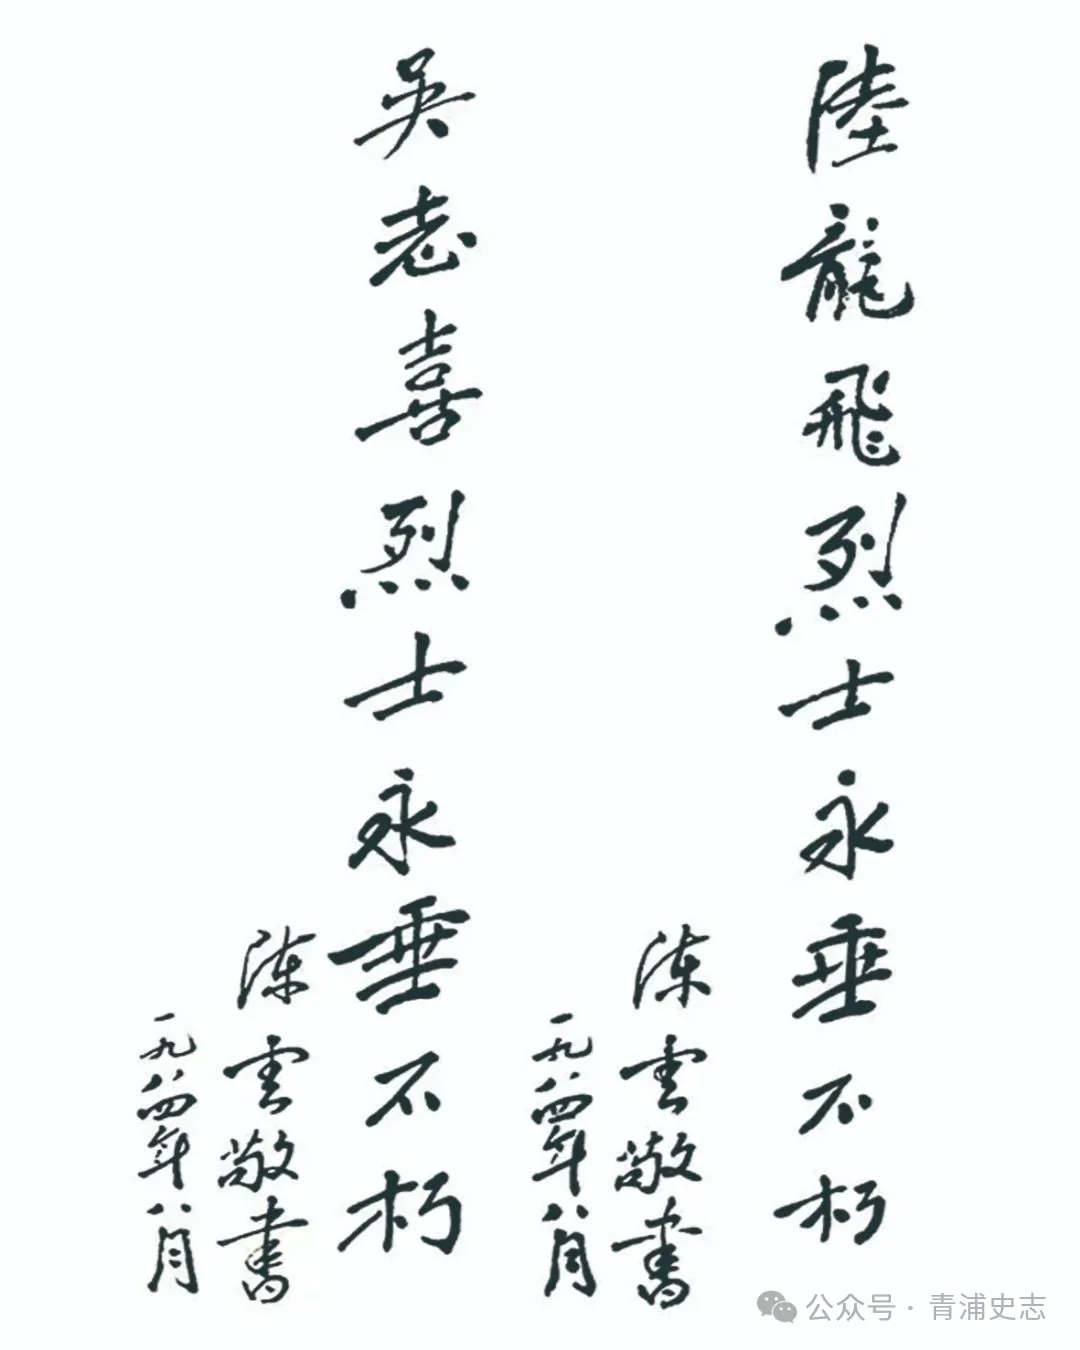 陸龍飛烈士永垂不朽
陈雲敬書
一九八四年八月
吴老喜烈士永垂不朽
陈雲敬書
一九八四年八月
公众号·青浦史志